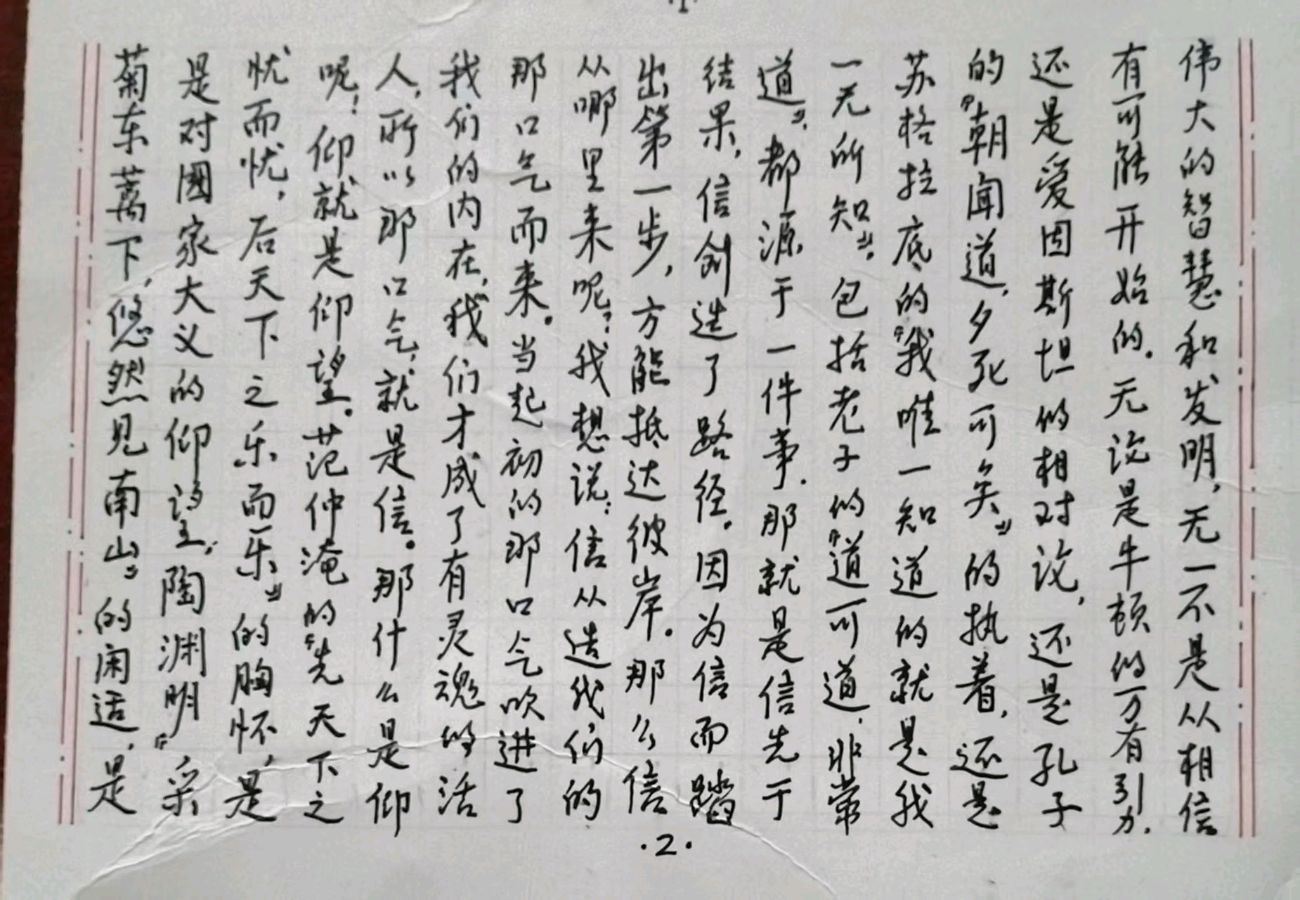 伟大的智慧和发明，无一不是从相信
有可能开始的。无论是牛顿的万有引力，
还是爱因斯坦的相对论，还是孔子
的“朝闻道，夕死可矣”的执着，还是
苏格拉底的“我唯一知道的就是我
一无所知”，包括老子的“道可道，非常
道”，都源于一件事，那就是信先于
结果，信创造了路径。因为信而踏
出第一步，方能抵达彼岸。那么信
从哪里来呢？我想说：信从造我们的
那口气而来。当起初的那口气吹进了
我们的内在，我们才成了有灵魂的活
人，所以那口气，就是信。那什么是仰
呢？仰就是仰望。范仲淹的“先天下之
忧而忧，后天下之乐而乐”的胸怀，是
是对國家大义的仰望；陶渊明“采
菊东蓠下，悠然见南山”的闲适，是
·2·